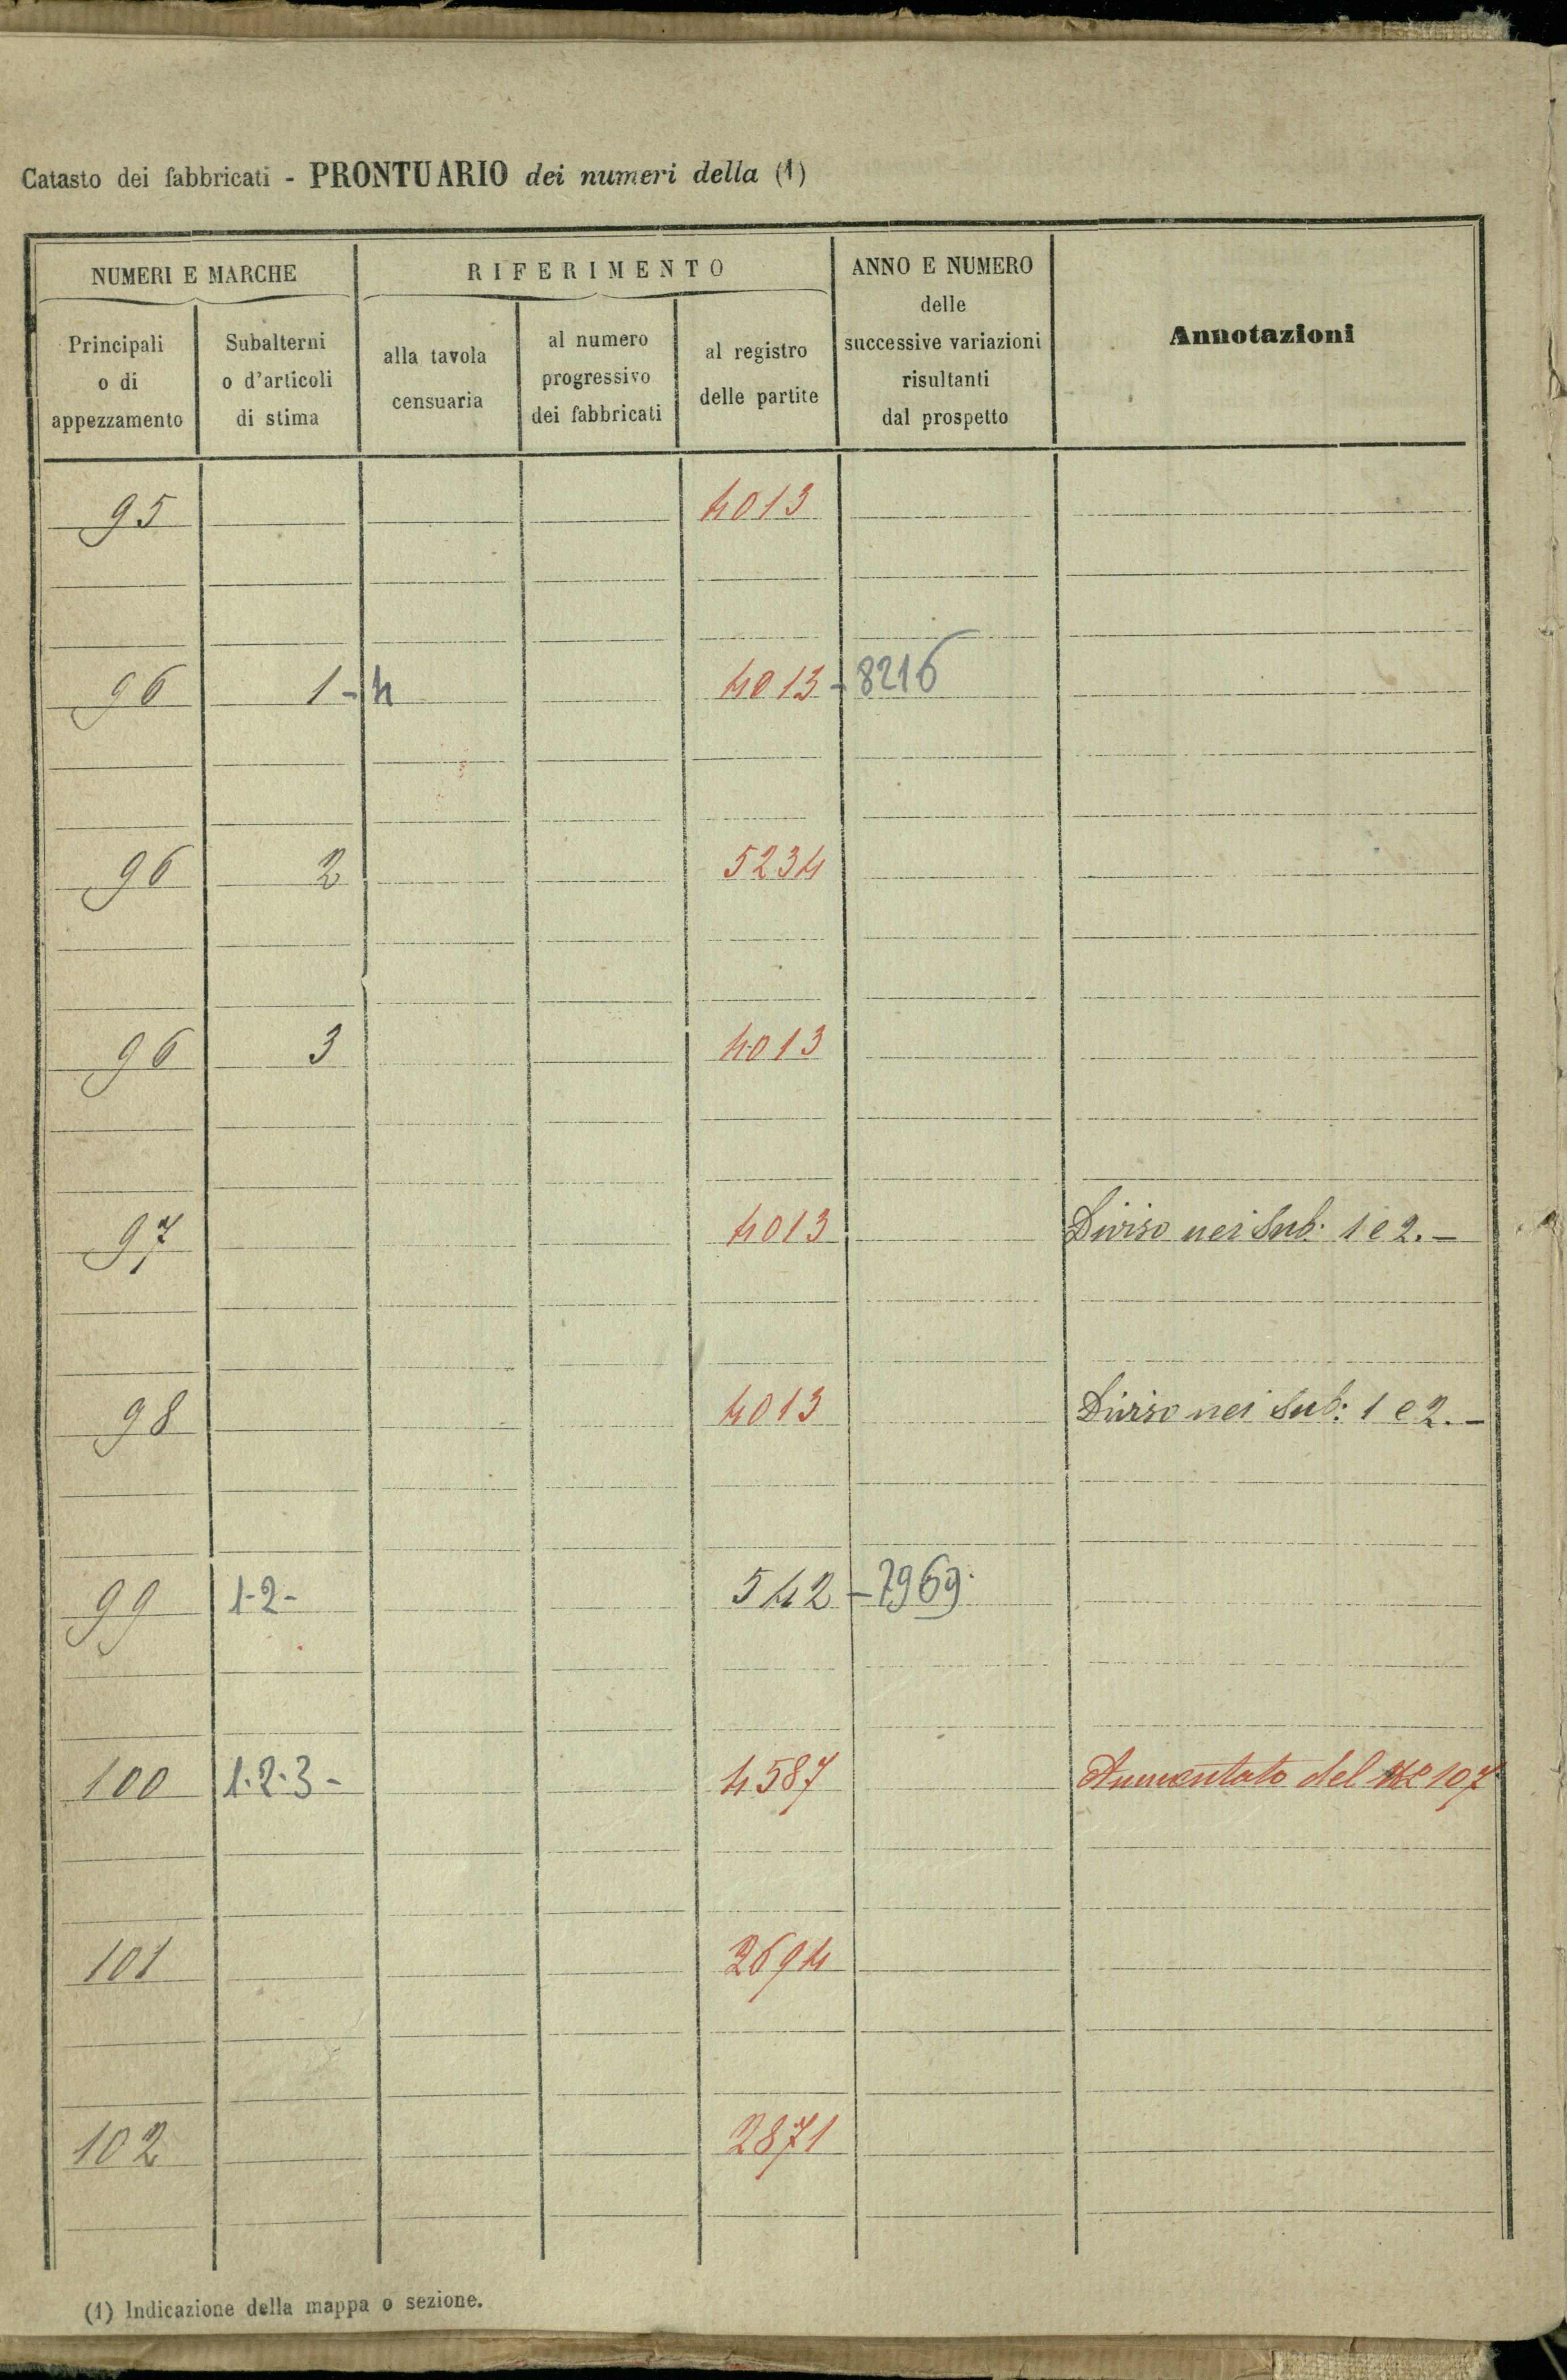 Catasto dei fabbricati - PRONTUARIO dei numeri della (1)
NUMERI E MARCHE
RIFERIMENTO
ANNO E NUMERO
delle
successive variazioni
risultanti
dal prospetto
Annotazioni
Principali
o di
appezzamento
Subalterni
o d'articoli
di stima
alla tavola
censuaria
al numero
progressivo
dei fabbricati
al registro
delle partite
95 4013
96 1-4 4013-8216
96 2 5234
96 3 4013
97 4013 Diviso nei Sub: 1 e 2.-
98 4013 Diviso nei Sub: 1 e 2.-
99 1-2- 542-7969.
100 1.2.3- 4587 Aumentato del No 107
101 2694
102 2871
(1) Indicazione della mappa o sezione.